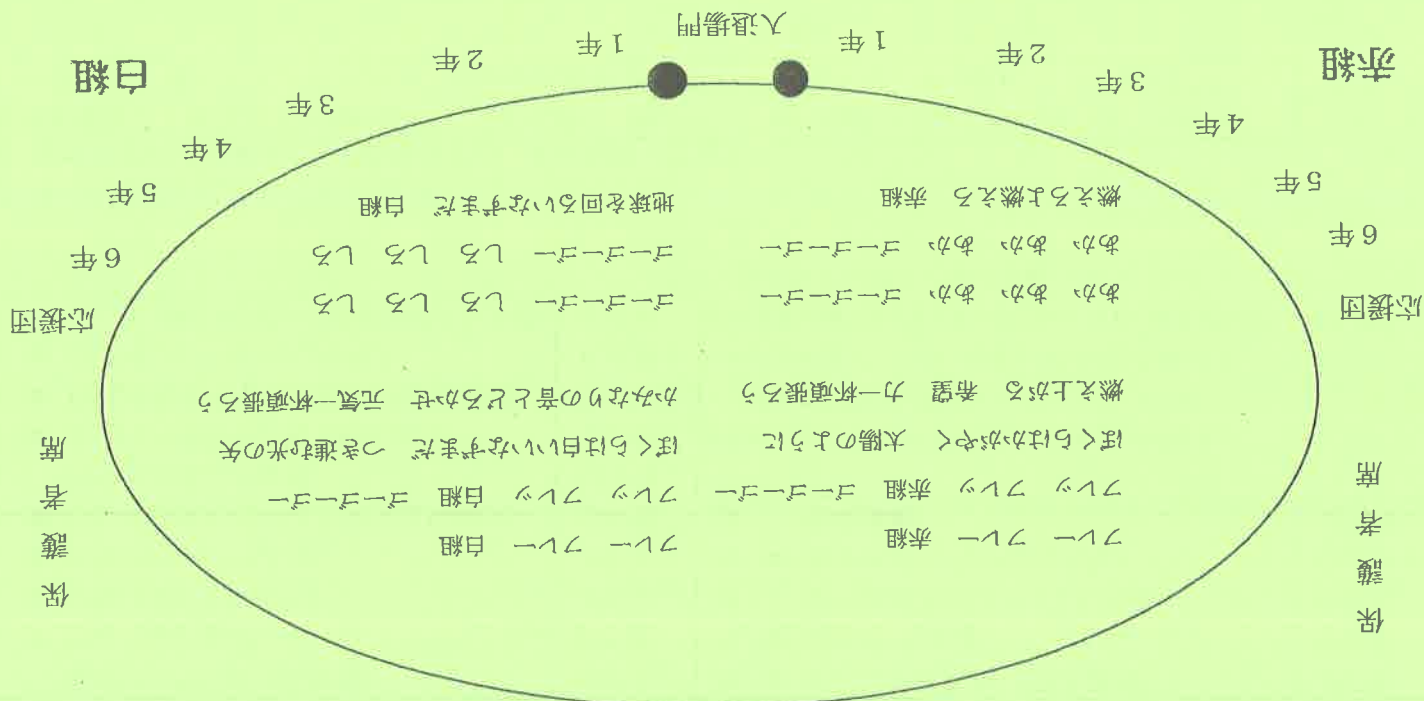 フレー フレー 赤組
フレッ フレッ 赤組 ゴーゴーゴー
ぼくらはかがやく 太陽のように
燃え上がる 希望 力一杯頑張ろう
あか あか あか ゴーゴーゴー
あか あか あか ゴーゴーゴー
燃えろよ燃えろ 赤組
フレー フレー 白組
フレッ フレッ 白組 ゴーゴーゴー
ぼくらは白いいなずまだ つき進む光の矢
かみなりの音とどろかせ 元気一杯頑張ろう
ゴーゴーゴー しろ しろ しろ
ゴーゴーゴー しろ しろ しろ
地球を回るいなずまだ 白組
保護者席
応援団
6年
5年
4年
3年
2年
1年
赤組
入退場門
保護者席
応援団
6年
5年
4年
3年
2年
1年
白組